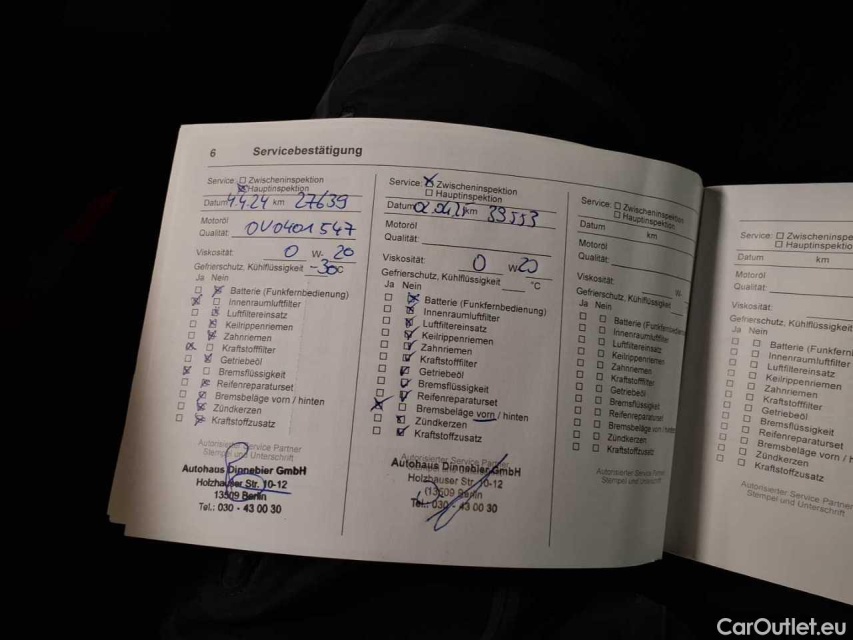 6 Servicebestätigung
Service: Zwischeninspektion
Hauptinspektion
Datum 4.4.24 km 27639
Motoröl
Qualität: OV0401547
Viskosität: 0 W- 20
Gefrierschutz, Kühlflüssigkeit -30°C
Ja Nein
Batterie (Funkfernbedienung)
Innenraumluftfilter
Luftfiltereinsatz
Keilrippenriemen
Zahnriemen
Kraftstofffilter
Getriebeöl
Bremsflüssigkeit
Reifenreparaturset
Bremsbeläge vorn / hinten
Zündkerzen
Kraftstoffzusatz
Autorisierter Service Partner
Stempel und Unterschrift
Autohaus Dinnebier GmbH
Holzhauser Str. 10-12
13509 Berlin
Tel.: 030 - 43 00 30
Service: Zwischeninspektion
Hauptinspektion
Datum km
Motoröl
Qualität:
Viskosität: 0 W20
Gefrierschutz, Kühlflüssigkeit °C
Ja Nein
Batterie (Funkfernbedienung)
Innenraumluftfilter
Luftfiltereinsatz
Keilrippenriemen
Zahnriemen
Kraftstofffilter
Getriebeöl
Bremsflüssigkeit
Reifenreparaturset
Bremsbeläge vorn / hinten
Zündkerzen
Kraftstoffzusatz
Autorisierter Service Partner
Autohaus Dinnebier GmbH
Holzhauser Str. 10-12
13509 Berlin
Tel.: 030 - 43 00 30
Service: Zwischeninspektion
Hauptinspektion
Datum km
Motoröl
Qualität:
Viskosität: W-
Gefrierschutz, Kühlflüssigkeit
Ja Nein
Batterie (Funkfernbedien
Innenraumluftfilter
Luftfiltereinsatz
Keilrippenriemen
Zahnriemen
Kraftstofffilter
Getriebeöl
Bremsflüssigkeit
Reifenreparaturset
Bremsbeläge vorn / hinten
Zündkerzen
Kraftstoffzusatz
Autorisierter Service Partner
Stempel und Unterschrift
Service: Zwischeninspe
Hauptinspektion
Datum km
Motoröl
Qualität:
Viskosität:
Gefrierschutz, Kühlflüssigkeit
Ja Nein
Batterie (Funkfern
Innenraumluftfilter
Luftfiltereinsatz
Keilrippenriemen
Zahnriemen
Kraftstofffilter
Getriebeöl
Bremsflüssigkeit
Reifenreparaturset
Bremsbeläge vorn
Zündkerzen
Kraftstoffzusatz
Autorisierter Service Partner
Stempel und Unterschrift
CarOutlet.eu